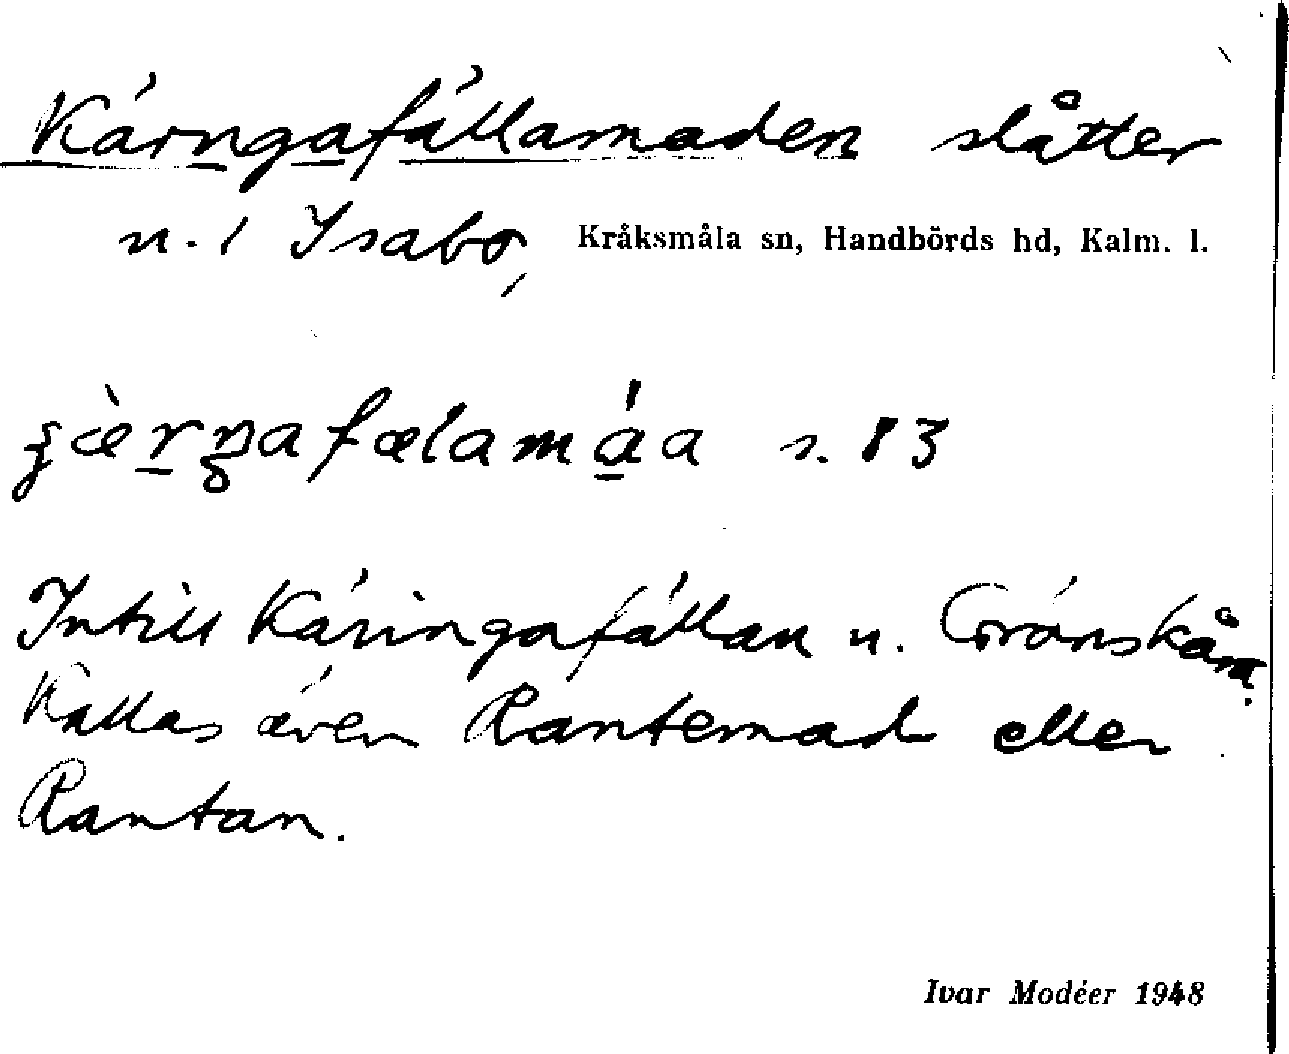 Kärngafällamaden slåtter
n. 1 Isabo, Kråksmåla sn, Handbörds hd, Kalm. l.
s. 83
Intill Käringafällan n. Grönskåra.
Kallas även Rantemad eller
Rantan.
Ivar Modéer 1948